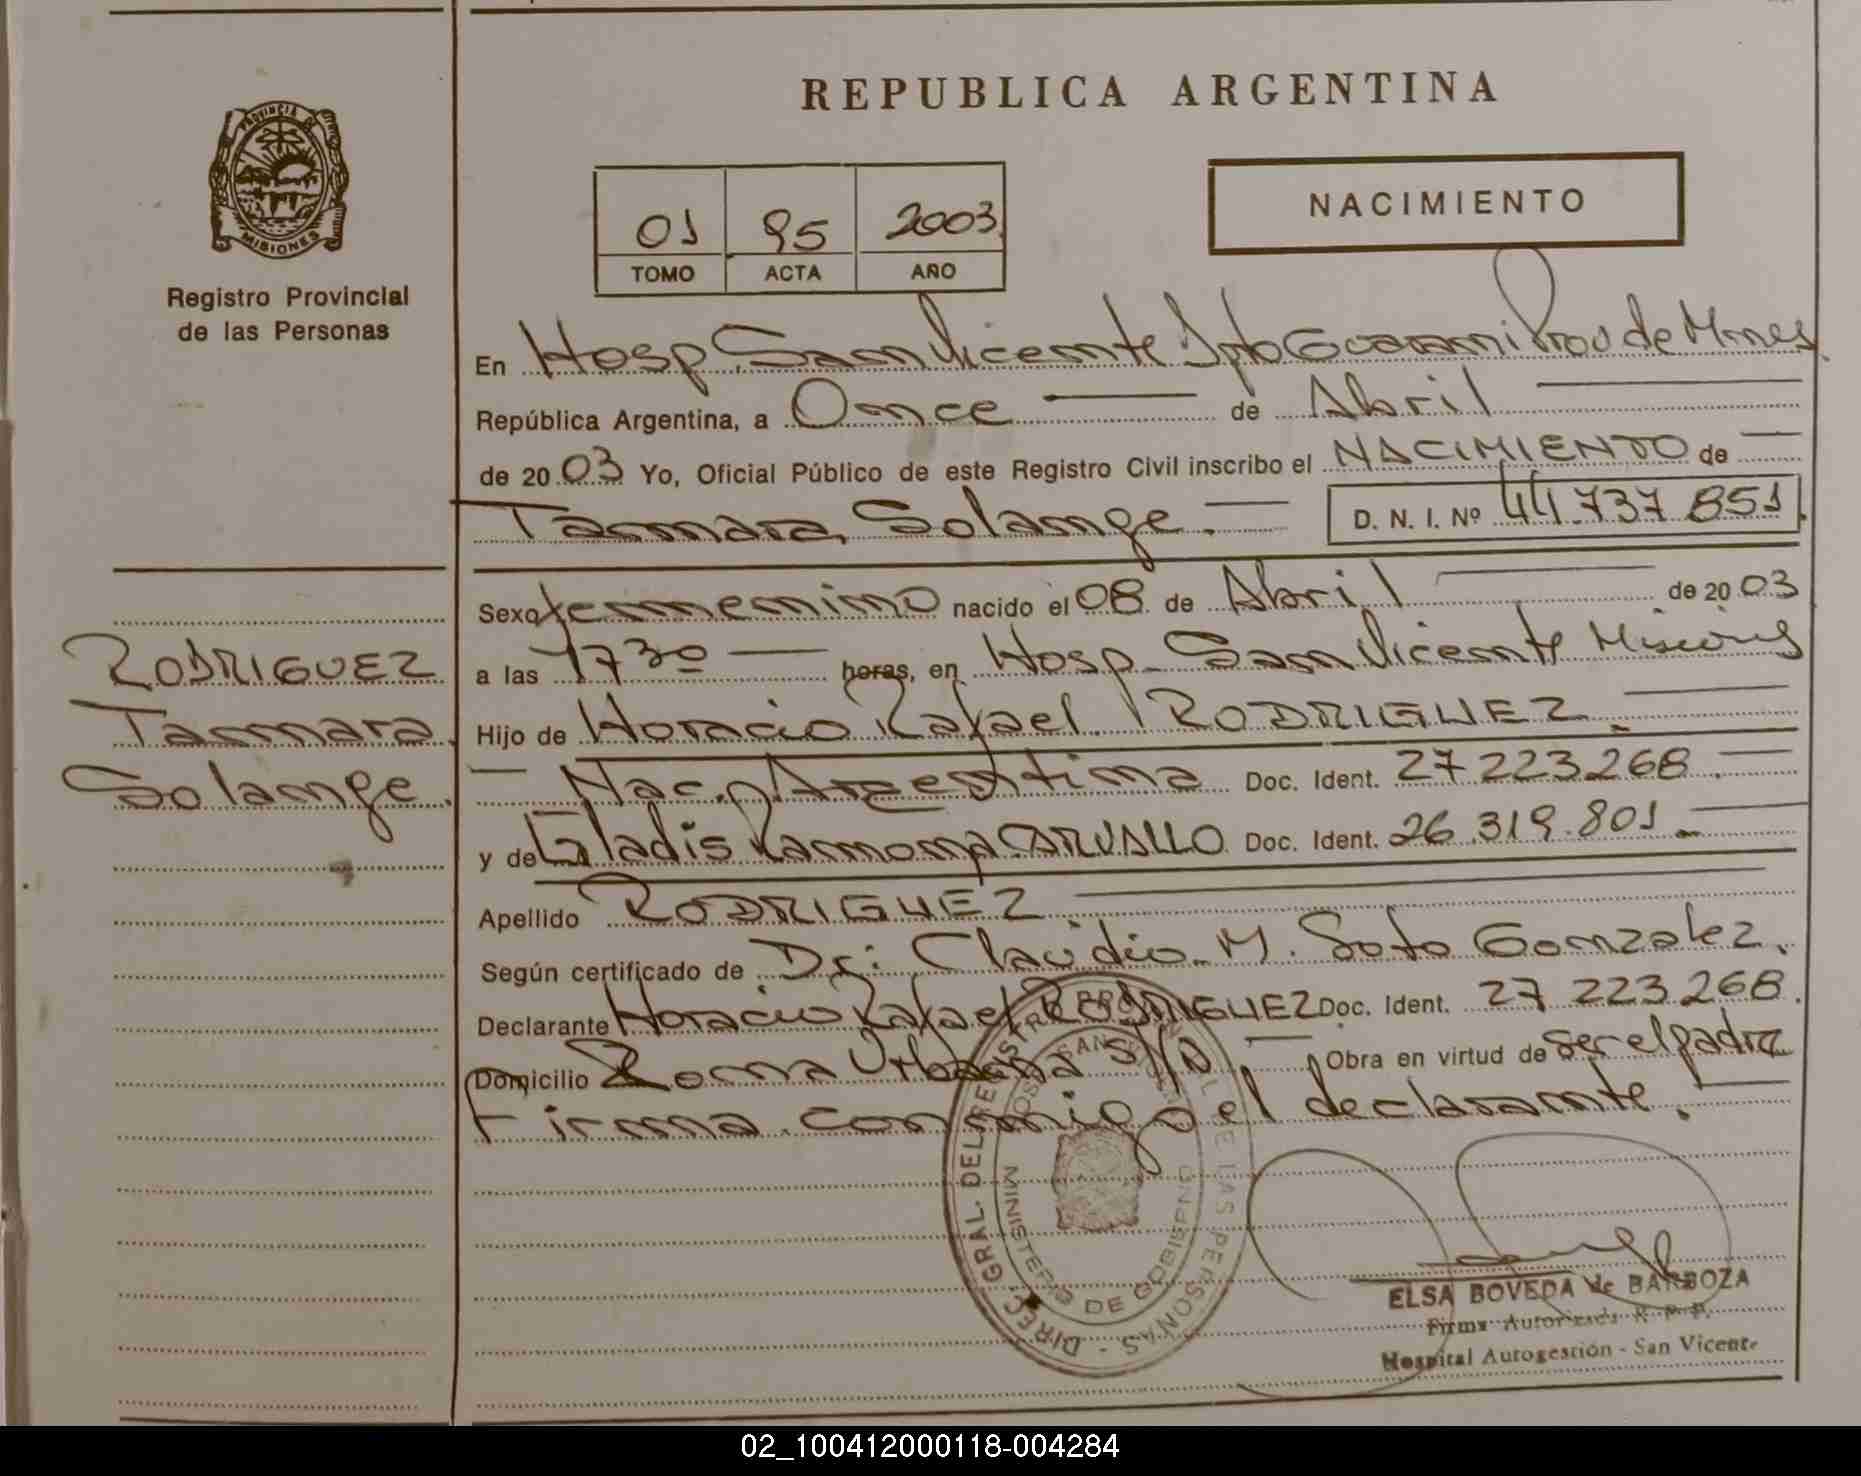 REPUBLICA ARGENTINA
PROVINCIA DE
MISIONES
Registro Provincial
de las Personas
01 95 2003
TOMO ACTA AÑO
NACIMIENTO
En Hosp. San Vicente Dpto Guarani Prov de Mnes
República Argentina, a Once de Abril
de 2003 Yo, Oficial Público de este Registro Civil inscribo el NACIMIENTO de
Tamara, Solange. D. N. I. Nº 44.737 851
Sexo femenino nacido el 08 de Abril de 2003
a las 17 30 horas, en Hosp. San Vicente Misiones
Hijo de Horacio Rafael RODRIGUEZ.
Nac. Argentina Doc. Ident. 27 223.268.
y de Gladis Ramona CARVALLO Doc. Ident. 26.319.801
Apellido RODRIGUEZ
Según certificado de Dr: Claudio M. Soto Gonzalez.
Declarante Horacio Rafael RODRIGUEZ Doc. Ident. 27 223.268.
Domicilio Zona Urbana S/D Obra en virtud de ser el padre
Firma conmigo el declarante.
RODRIGUEZ
Tamara
Solange.
DIREC. GRAL. DEL REGISTRO PROVINCIAL DE LAS PERSONAS
MINISTERIO DE GOBIERNO
ELSA BOVEDA de BARBOZA
Firma Autorizada R. P. P.
Hospital Autogestión - San Vicente
02_100412000118-004284